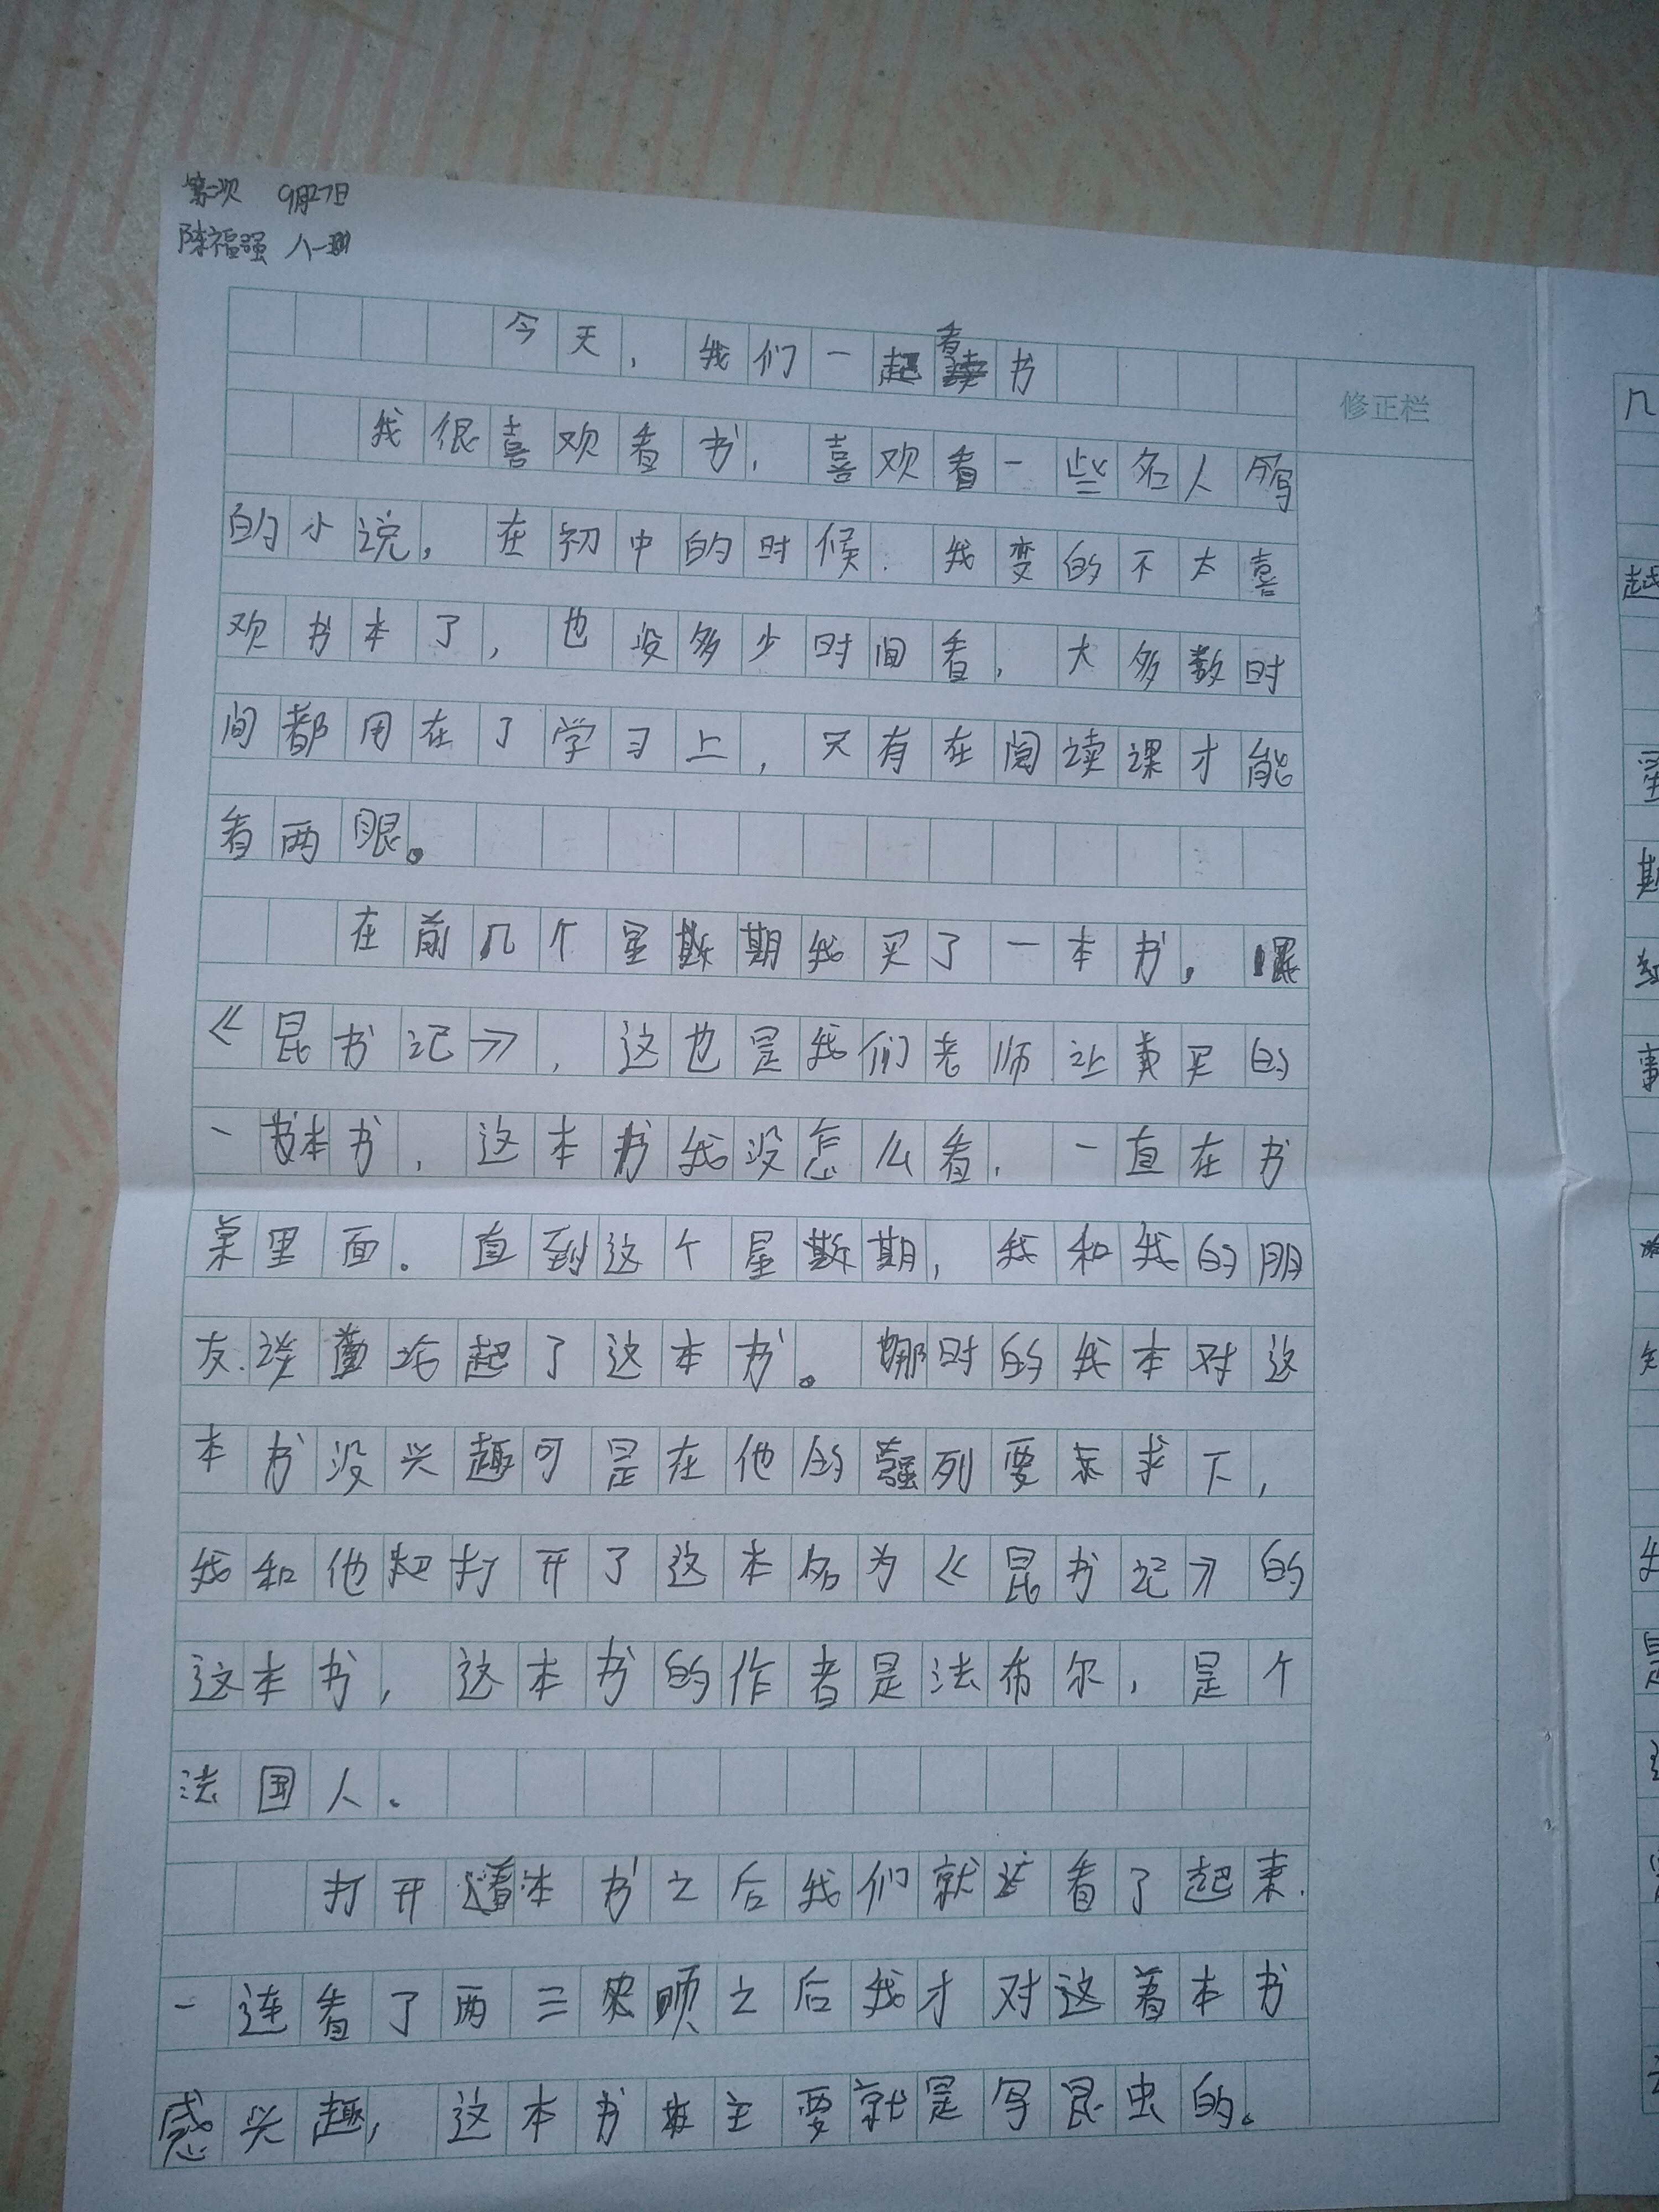 第二次 9月27日
陈福强 八一班
今天，我们一起看书
修正栏
我很喜欢看书，喜欢看一些名人写
的小说，在初中的时候．我变的不太喜
欢书本了，也没多少时间看，大多数时
间都用在了学习上，只有在阅读课才能
看两眼。
在前几个星期我买了一本书。
《昆书记》，这也是我们老师让买的
一本书，这本书我没怎么看，一直在书
里面．直到这个星期，我和我的朋
友谈论起了这本书。那时的我本对这
本书没兴趣可是在他的强列要求下，
我和他把打开了这本名为《昆书记》的
这本书，这本书的作者是法布尔，是个
法国人．
打开这本书之后我们就看了起来．
一连看了两三页之后我才对这本书
感兴趣，这本书主要就是写昆虫的。
几
起
星
期
事